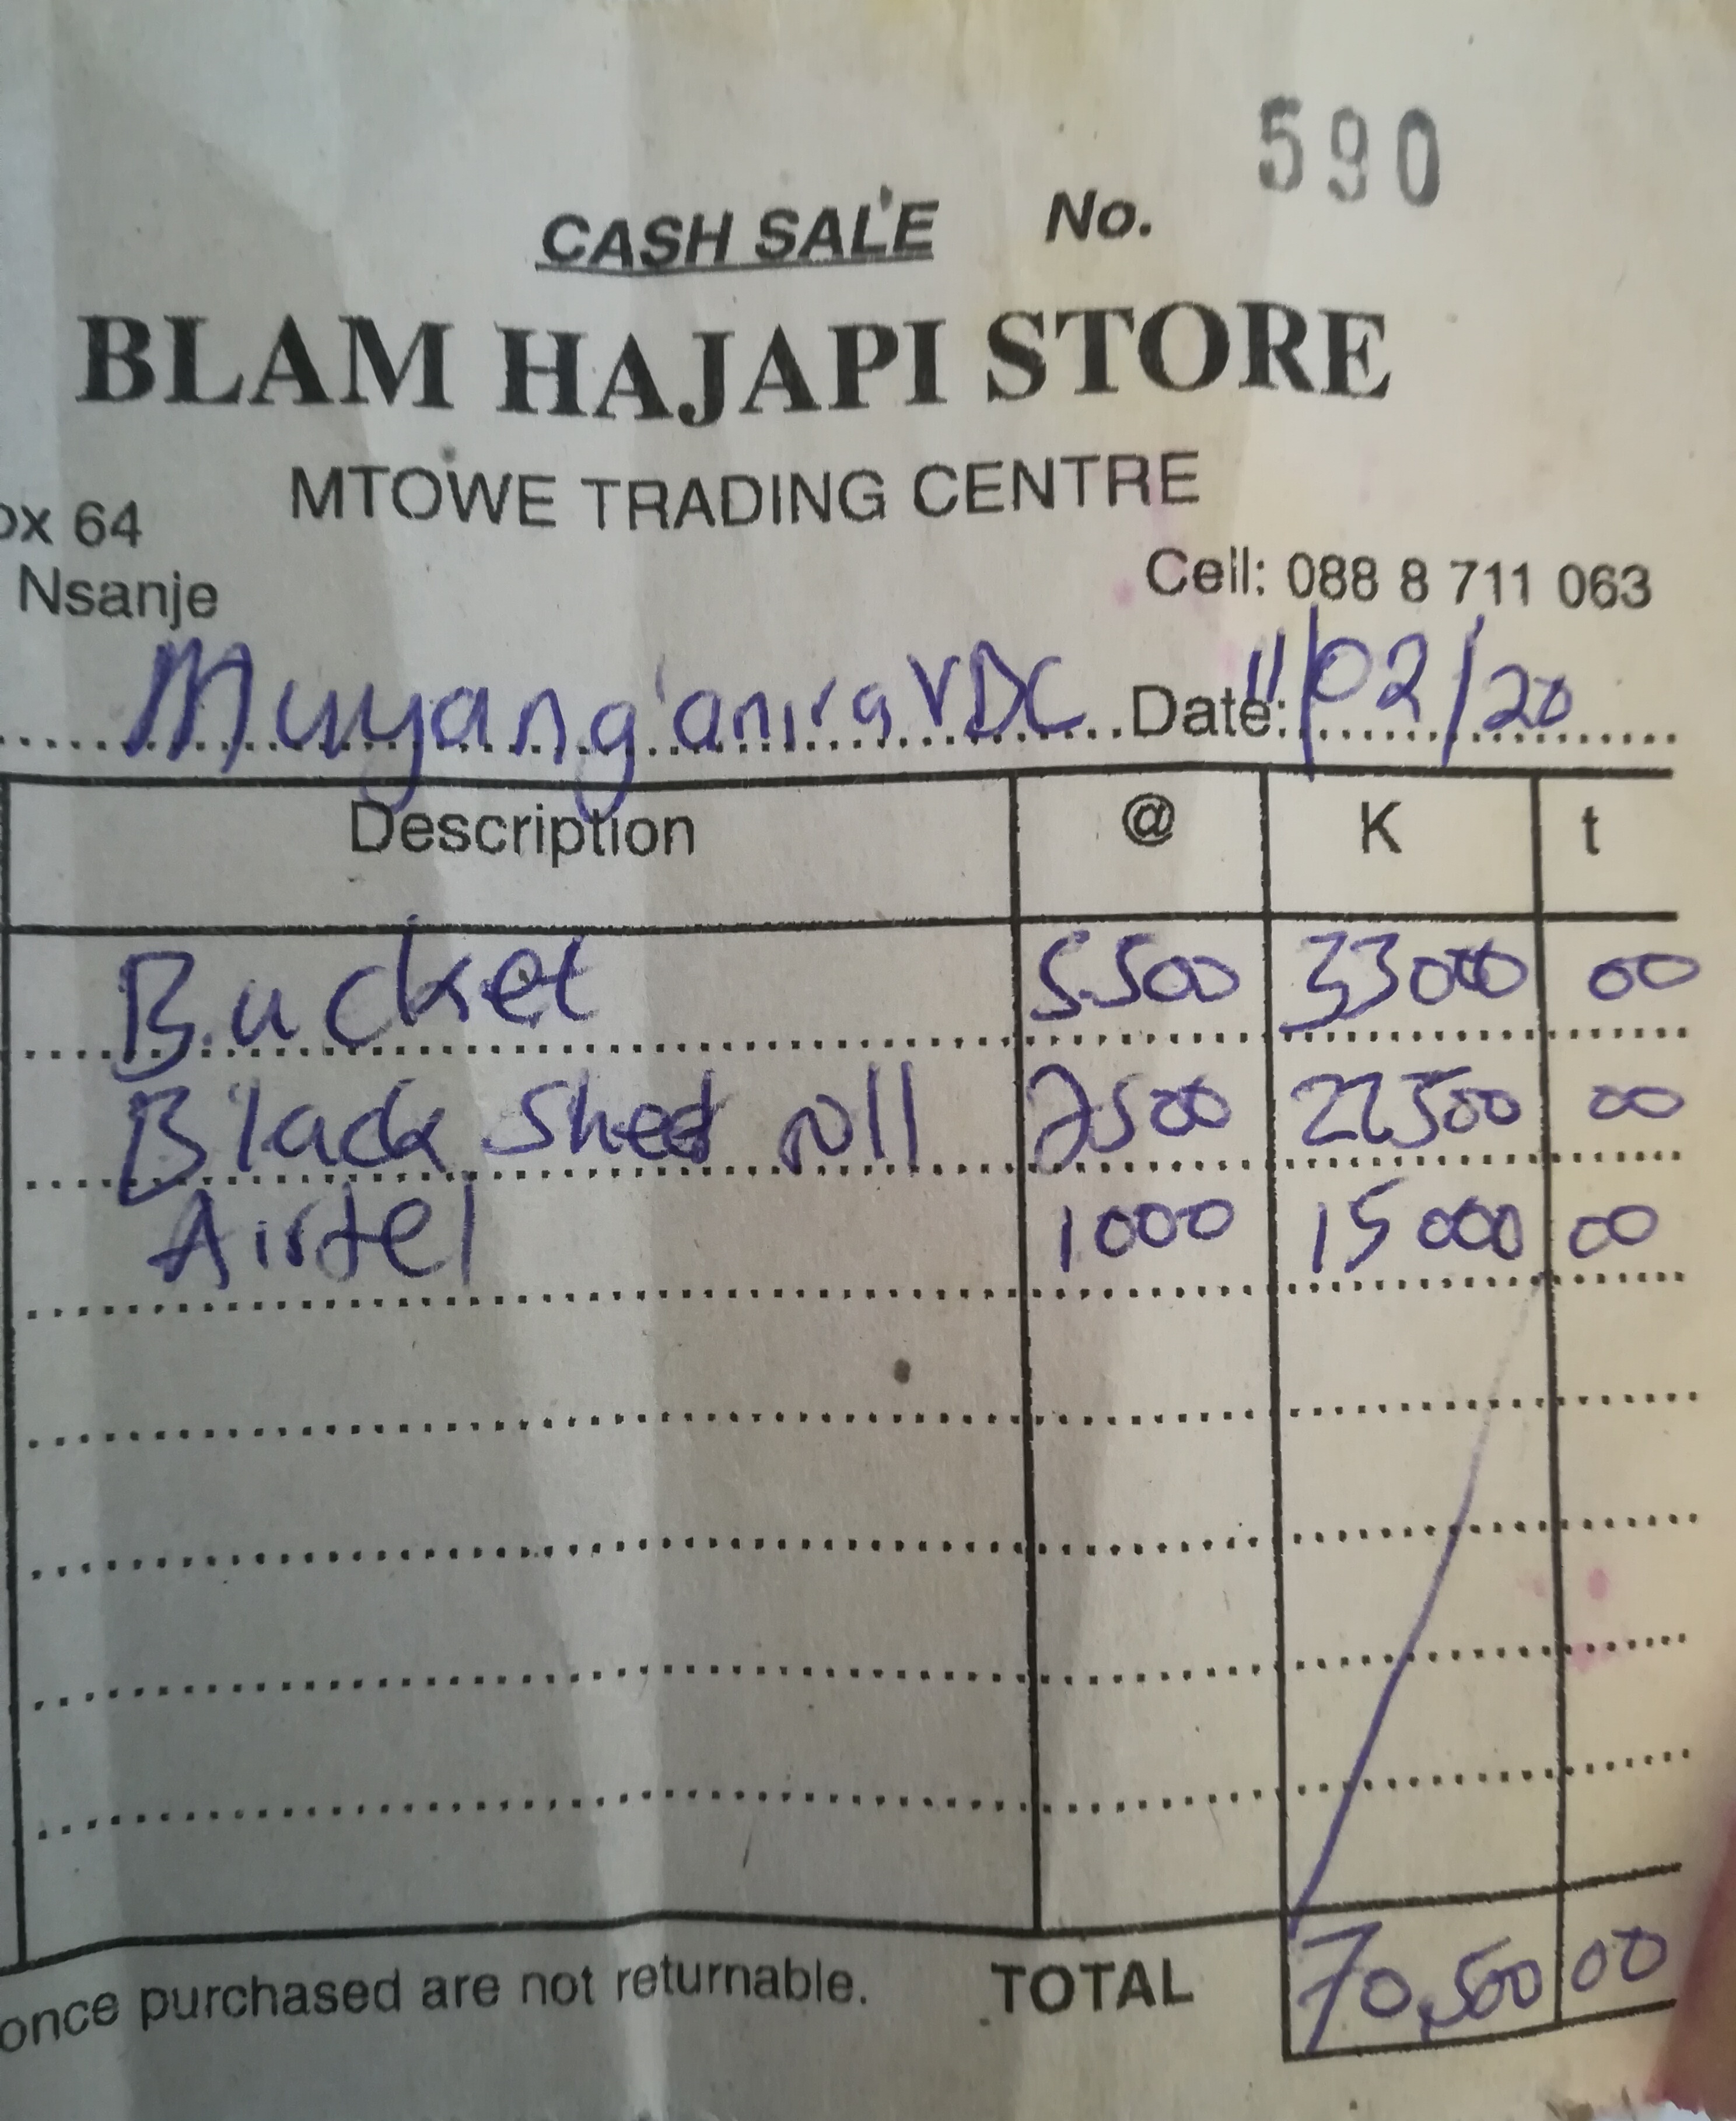 590
CASH SALE No.
BLAM HAJAPI STORE
MTOWE TRADING CENTRE
ox 64
Nsanje
Cell: 088 8 711 063
Muyang'anira VDC Date: 11/02/20
Description @ K t
Bucket 5.500 33000 00
Black shed roll 2500 22500 00
Airtel 1000 15000 00
once purchased are not returnable. TOTAL 70,500 00